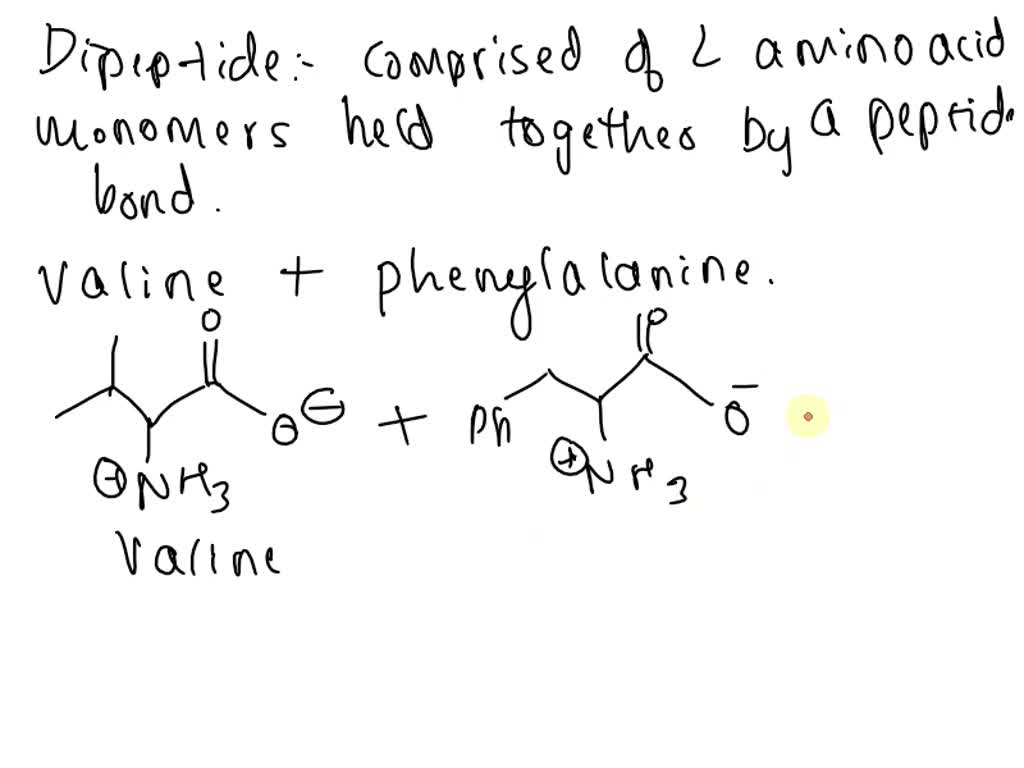 Dipeptide:- comprised of 2 amino acid
monomers held together by a peptide
bond.
Valine + phenylalanine.
O O
⊖
O + Ph O⁻
⊕NH3 ⊕NH3
Valine